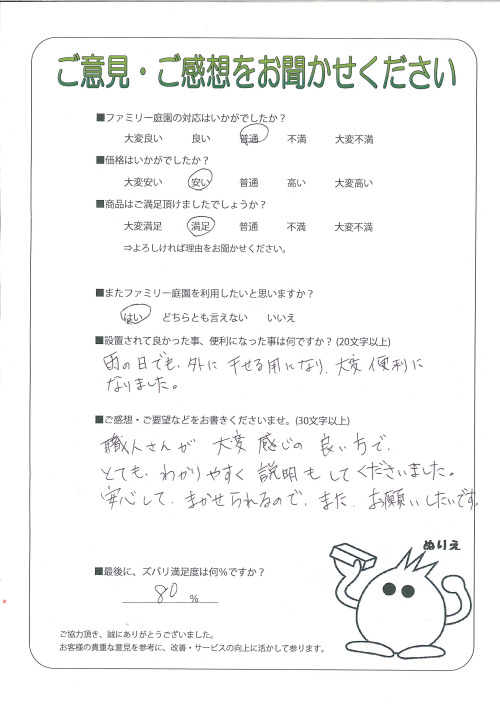 ご意見・ご感想をお聞かせください
■ファミリー庭園の対応はいかがでしたか？
大変良い 良い 普通 不満 大変不満
■価格はいかがでしたか？
大変安い 安い 普通 高い 大変高い
■商品はご満足頂けましたでしょうか？
大変満足 満足 普通 不満 大変不満
⇒よろしければ理由をお聞かせください。
■またファミリー庭園を利用したいと思いますか？
はい どちらとも言えない いいえ
■設置されて良かった事、便利になった事は何ですか？(20文字以上)
雨の日でも、外に干せる用になり、大変便利に
なりました。
■ご感想・ご要望などをお書きくださいませ。(30文字以上)
職人さんが 大変 感じの 良い方で、
とても、わかりやすく 説明も してくださいました。
安心して、まかせられるので、また、お願いしたいです。
ぬりえ
■最後に、ズバリ満足度は何％ですか？
80 %
ご協力頂き、誠にありがとうございました。
お客様の貴重な意見を参考に、改善・サービスの向上に活かして参ります。